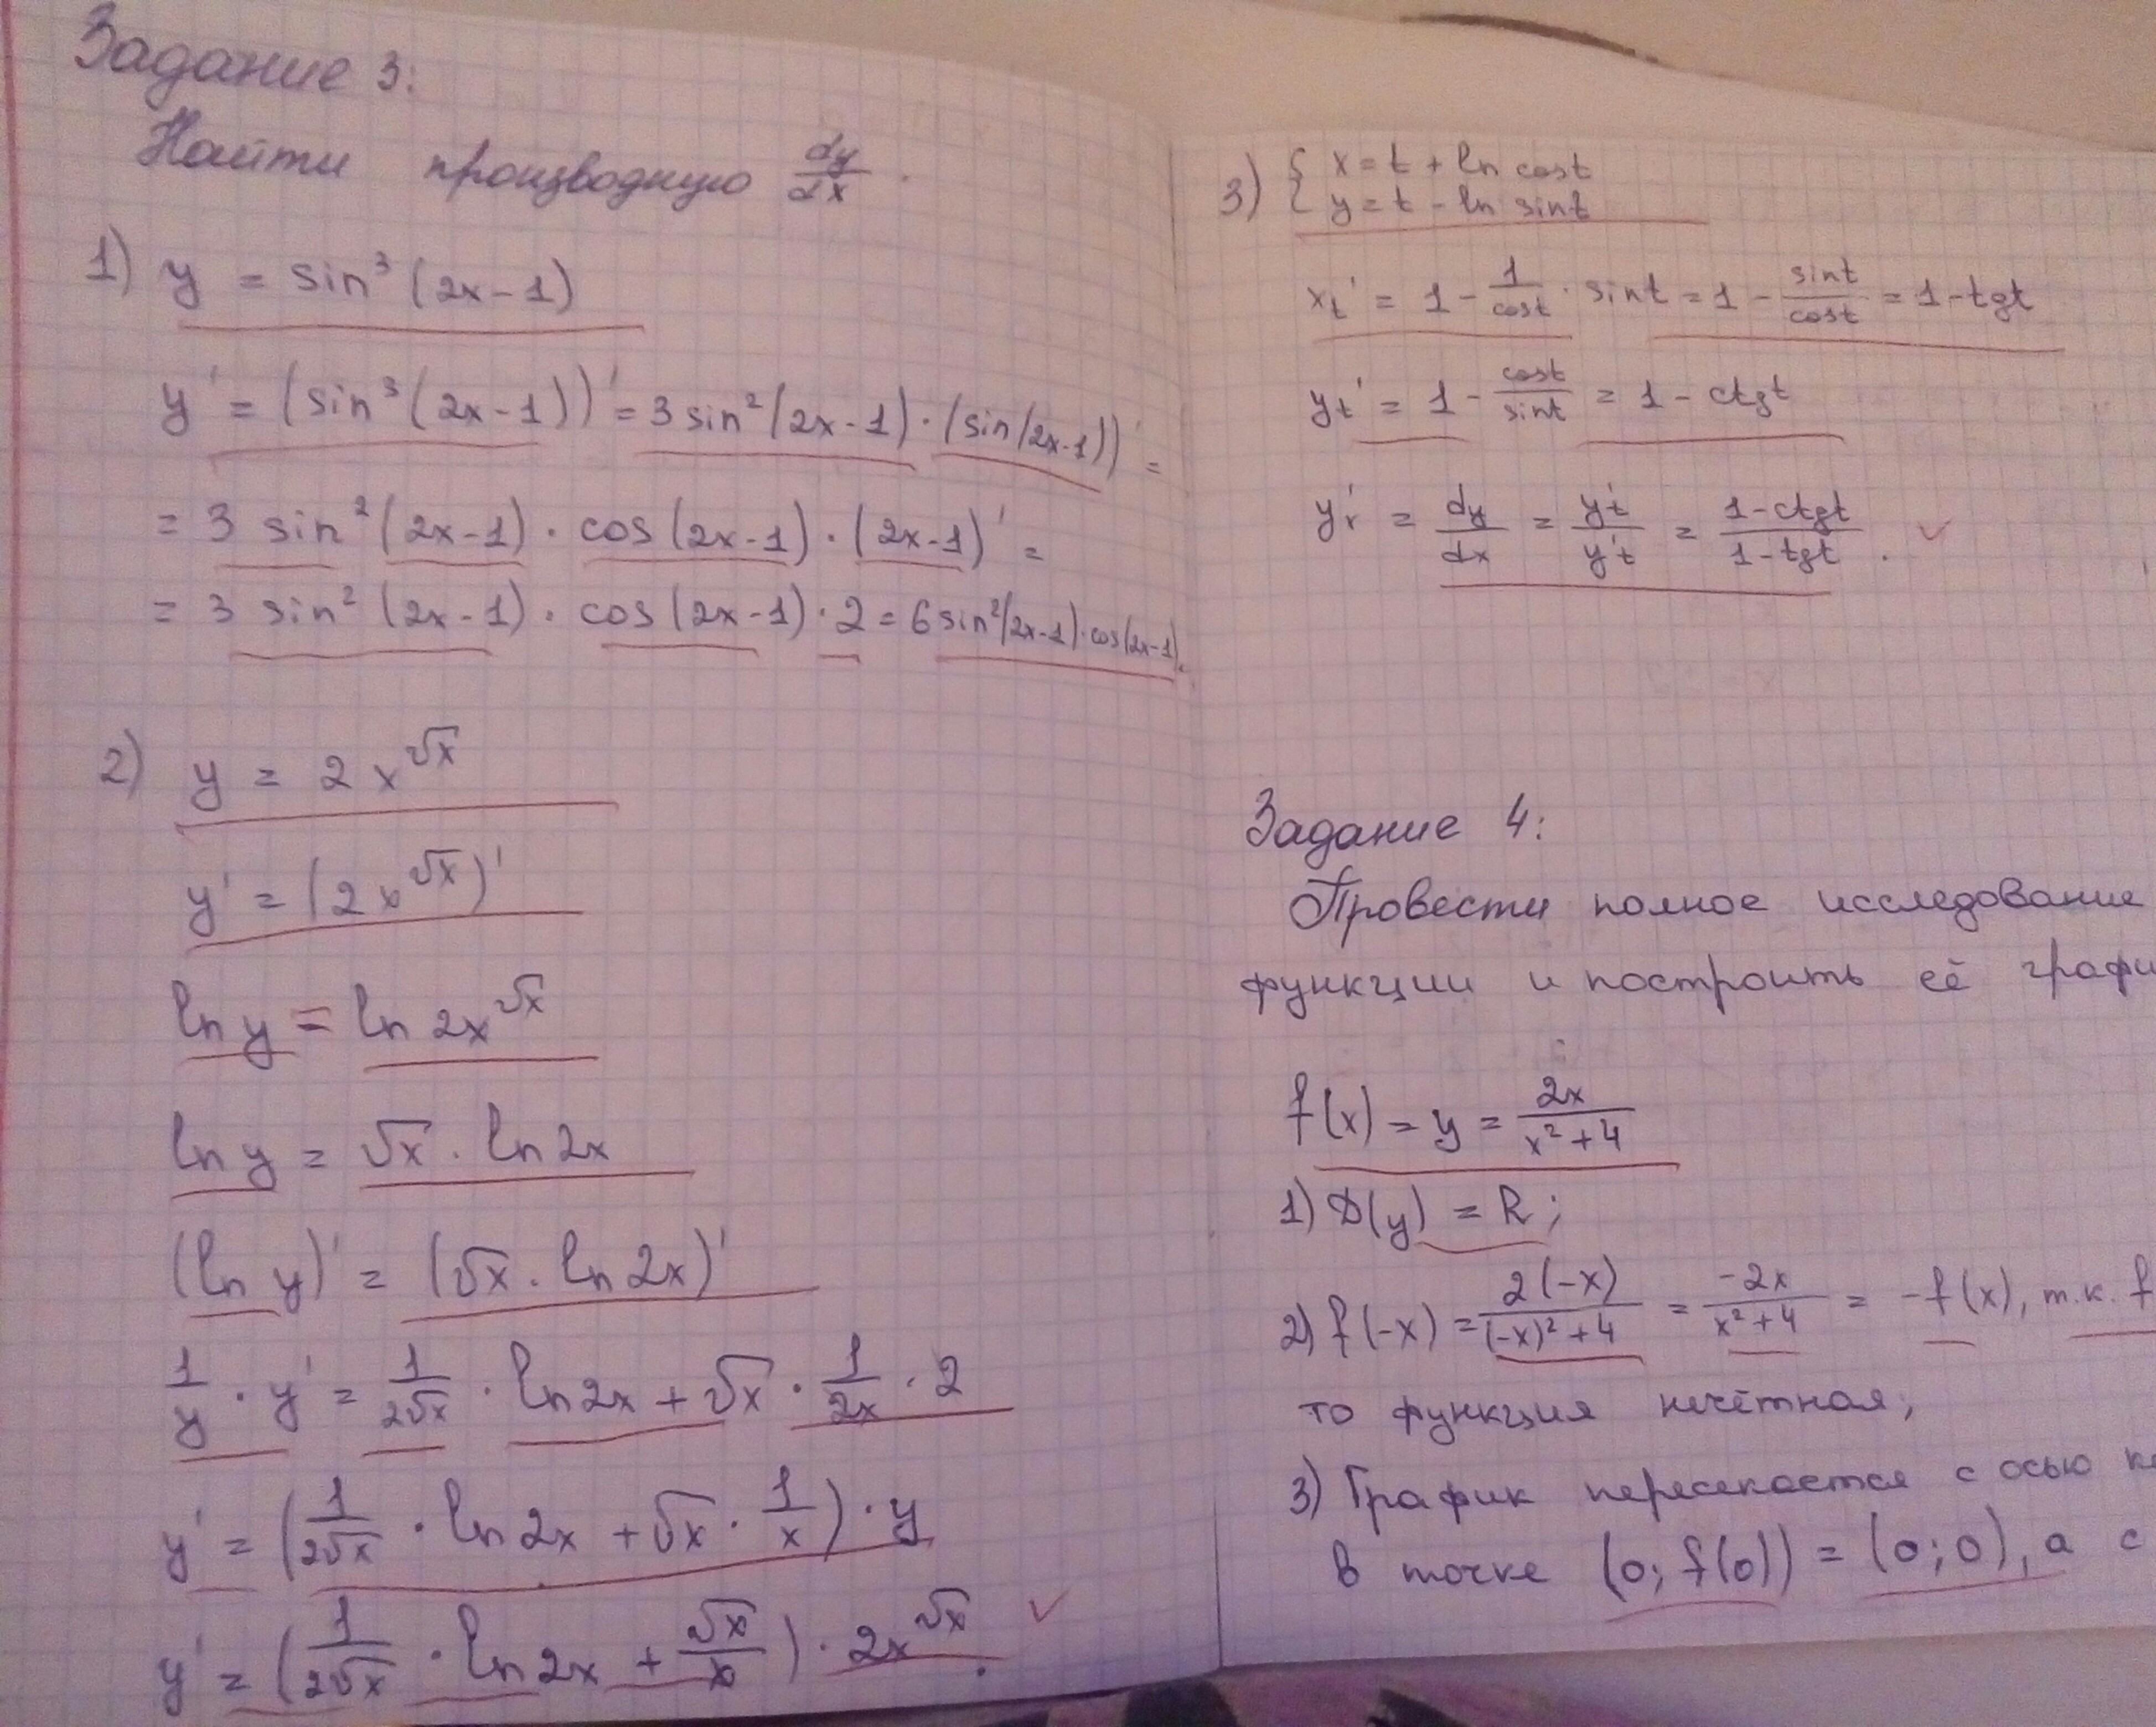 Задание 3:
Найти производную dy/dx.
1) y = sin³(2x-1)
y' = (sin³(2x-1))' = 3 sin²(2x-1) · (sin(2x-1))' =
= 3 sin²(2x-1) · cos(2x-1) · (2x-1)' =
= 3 sin²(2x-1) · cos(2x-1) · 2 = 6 sin²(2x-1) · cos(2x-1).
2) y = 2x^√x
y' = (2x^√x)'
ln y = ln 2x^√x
ln y = √x · ln 2x
(ln y)' = (√x · ln 2x)'
1/y · y' = 1/(2√x) · ln 2x + √x · 1/(2x) · 2
y' = (1/(2√x) · ln 2x + √x · 1/x) · y
y' = (1/(2√x) · ln 2x + √x/x) · 2x^√x.
3) { x = t + ln cost
{ y = t - ln sint
x't = 1 - 1/cost · sint = 1 - sint/cost = 1 - tgt
y't = 1 - cost/sint = 1 - ctgt
y'x = dy/dx = y't/y't = (1-ctgt)/(1-tgt).
Задание 4:
Провести полное исследование
функции и построить её графи
f(x) = y = 2x/(x²+4)
1) D(y) = R;
2) f(-x) = 2(-x)/((-x)²+4) = -2x/(x²+4) = -f(x), т.к. f
то функция нечётная;
3) График пересекается с осью
в точке (0; f(0)) = (0; 0), а с